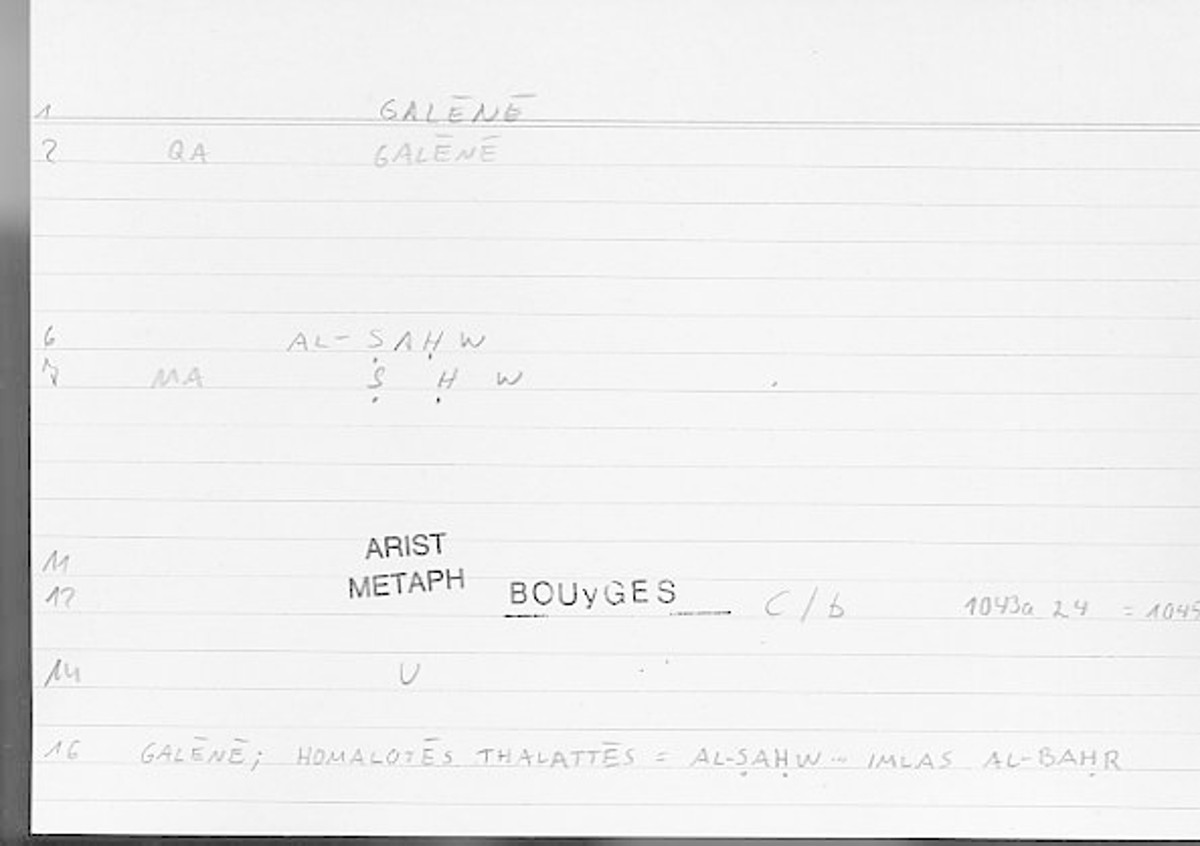 1 GALĒNĒ
2 QA GALĒNĒ
6 AL-ṢAḤW
7 MA Ṣ Ḥ W
11 ARIST
12 METAPH BOUyGES C/b 1043a 24 = 1045
14 U
16 GALĒNĒ; HOMALOTĒS THALATTĒS = AL-ṢAḤW... IMLAS AL-BAḤR